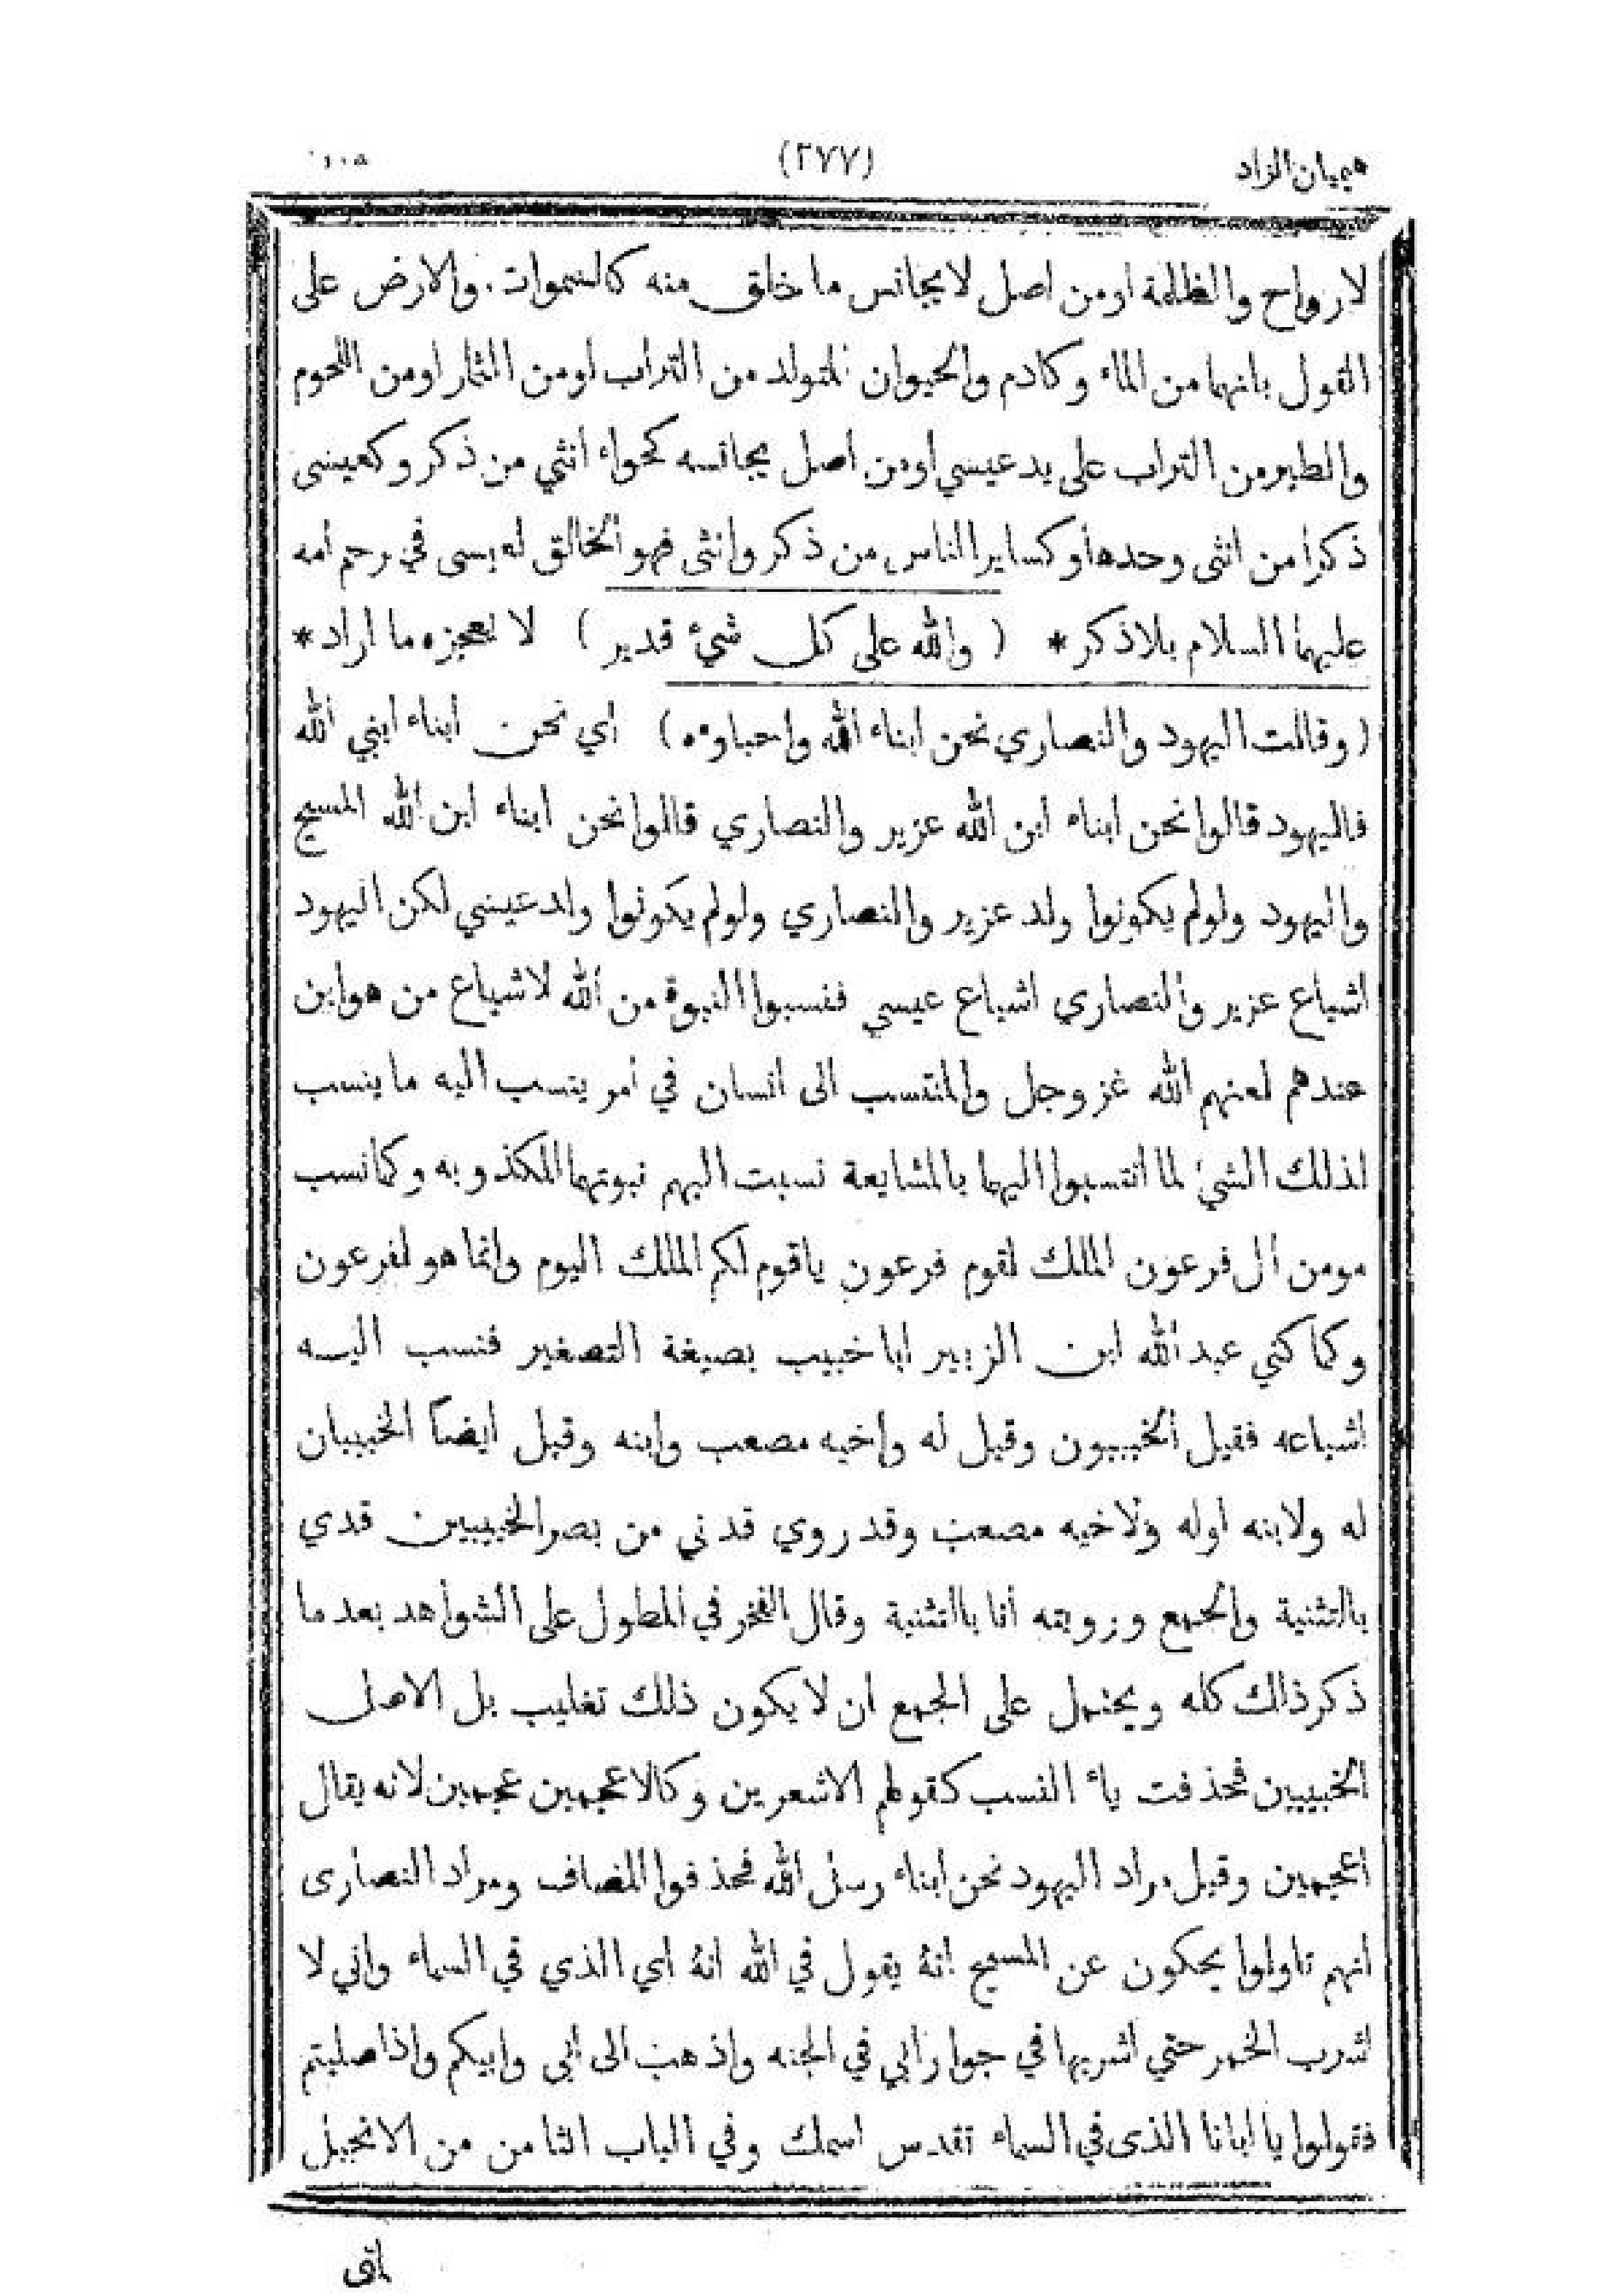 هيميان الزاد (٢٧٧) ١٠٥
لارواح والظلمة اومن اصل لايجانس ما خلق منه كالسموات والارض على
القول بانهما من الماء وكادم والحيوان المتولد من التراب اومن الثمار اومن اللحوم
والطير من التراب على يد عيسي اومن اصل يجانسه كحواء انثي من ذكر وكعيسى
ذكرا من انثى وحدها أو كساير الناس من ذكر وانثى فهو الخالق لعيسى في رحم أمه
عليهما السلام بلا ذكر * ( والله على كل شيئ قدير ) لا يعجزه ما اراد *
( وقالت اليهود والنصاري نحن ابناء الله واحباوءه ) أي نحن ابناء ابني الله
فاليهود قالوا نحن ابناء ابن الله عزير والنصاري قالوا نحن ابناء ابن الله المسيح
واليهود ولولم يكونوا ولد عزير والنصاري ولولم يكونوا ولد عيسي لكن اليهود
اشياع عزير والنصاري اشياع عيسي فنسبوا النبوة من الله لاشياع من هوابن
عندهم لعنهم الله عز وجل والمنتسب الى انسان في أمر ينسب اليه ما ينسب
لذلك الشيئ لما انتسبوا اليهما بالمشايعة نسبت اليهم نبوتهما المكذوبه وكما نسب
مومن ال فرعون الملك لقوم فرعون ياقوم لكم الملك اليوم وانما هو لفرعون
وكما كني عبد الله ابن الزبير ابا خبيب بصيغة التصغير فنسب اليه
اشياعه فقيل الخبيبون وقيل له واخيه مصعب وابنه وقيل ايضاً الخبيبان
له ولابنه اوله ولاخيه مصعب وقد روي قدني من بصر الخبيبين قدي
بالتثنية والجمع ورويته أنا بالتثنية وقال الفخر في المطول على الشواهد بعد ما
ذكر ذالك كله ويحتمل على الجمع ان لا يكون ذلك تغليب بل الاصل
الخبيبيين فحذفت ياء النسب كقولهم الاشعرين وكالاعجمين عجمين لانه يقال
أعجمين وقيل مراد اليهود نحن ابناء رسل الله فحذفوا المضاف ومراد النصارى
انهم تاولوا يحكون عن المسيح انه يقول في الله انه ابي الذي في السماء واني لا
اشرب الخمر حتي اشربها في جوار ابي في الجنه واذهب الى ابى وابيكم واذا صليتم
فقولوا يا ابانا الذى في السماء تقدس اسمك وفي الباب الثامن من الانجيل